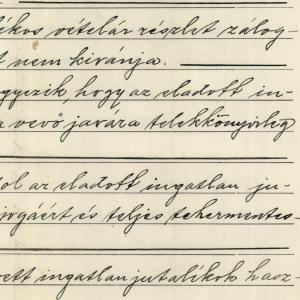 ékos vételár részlet zálog-
t nem kivánja.
gyezik, hogy az eladott in-
vevő javára telekkönyvileg
ól az eladott ingatlan ju-
jogáért és teljes tehermentes-
vett ingatlan jutalékok hasz-